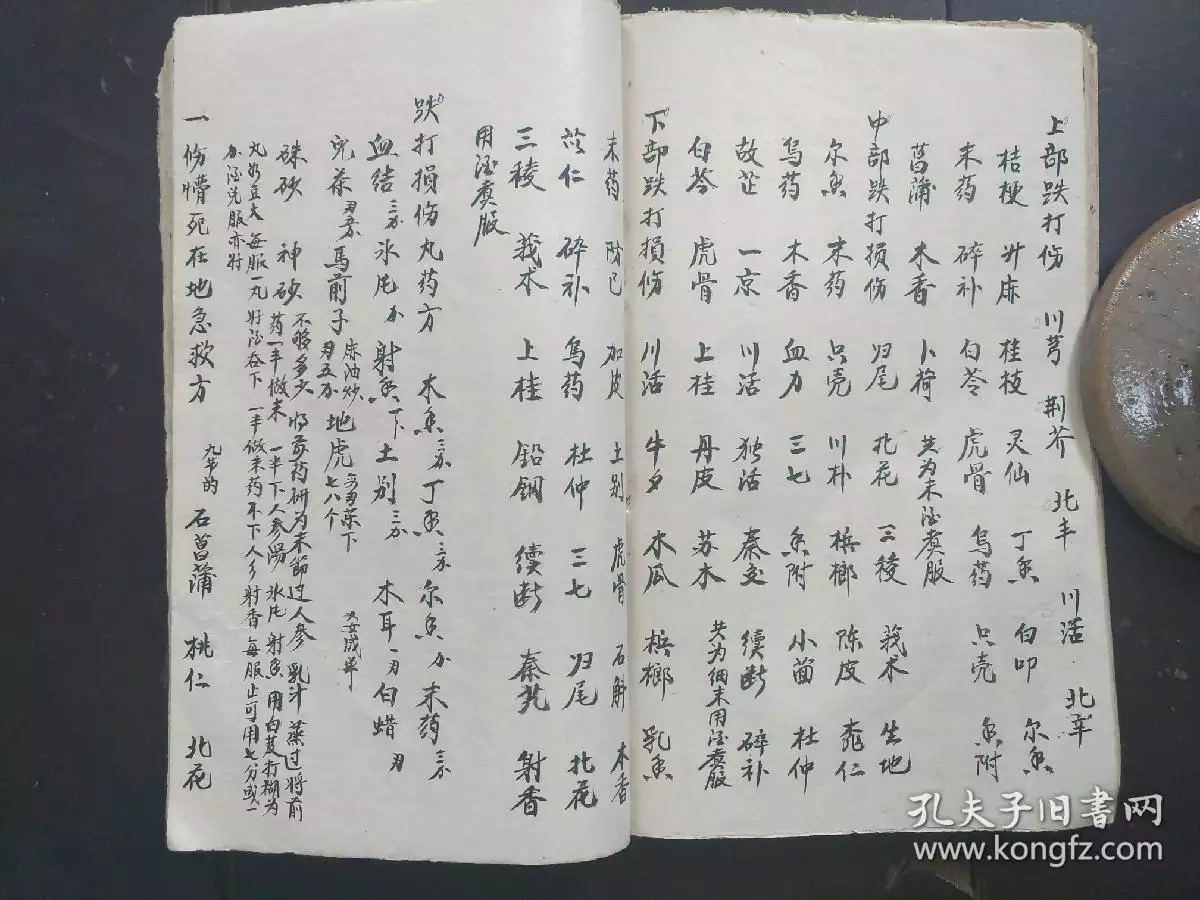 上部跌打伤 川芎 荆芥 北丰 川活 北辛
桔梗 升麻 桂枝 灵仙 丁香 白叩 尔香
末药 碎补 白苓 虎骨 乌药 只壳 香附
菖蒲 木香 卜荷 共为末酒煲服
中部跌打损伤 归尾 北花 三稜 莪术 生地
尔香 末药 只壳 川朴 梹榔 陈皮 桃仁
乌药 木香 血力 三七 香附 小茴 杜仲
故芷 一京 川活 独活 秦艽 续断 碎补
白苓 虎骨 上桂 丹皮 苏木 共为细末用酒煲服
下部跌打损伤 川活 牛夕 木瓜 梹榔 乳香
末药 防己 加皮 土别 虎骨 石斛 木香
苡仁 碎补 乌药 杜仲 三七 归尾 北花
三稜 莪术 上桂 铅钢 续断 秦艽 射香
用酒煲服
跌打损伤丸药方 木香 丁香 尔香 末药
血结 氺片 射香 土别 木耳 白蜡
児茶 马前子 麻油炒 地虎 七八个
硃砂 神砂 不够多少 将前药研为末節过人参 乳汁 蒸过将前
药一半做末 一半下人参湯 氺片 射香 用白芨打糊为
丸如豆大 每服一丸 好酒吞下 一半做末药不下人参射香 每服止可用七分或一
酒兑服亦好
一 伤懵死在地急救方 九节的 石菖蒲 桃仁 北花
孔夫子旧书网
www.kongfz.com